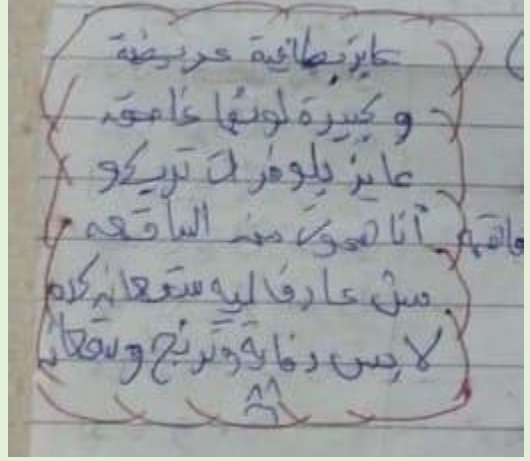 عايز بطانية عريضة
و كبيرة لونها غامق
عايز بلوفر لـ تريكو
أنا هموت من الساقعه
مش عارف ليه سقعان كده
لابس دفاية وترنج وسقعان
^^